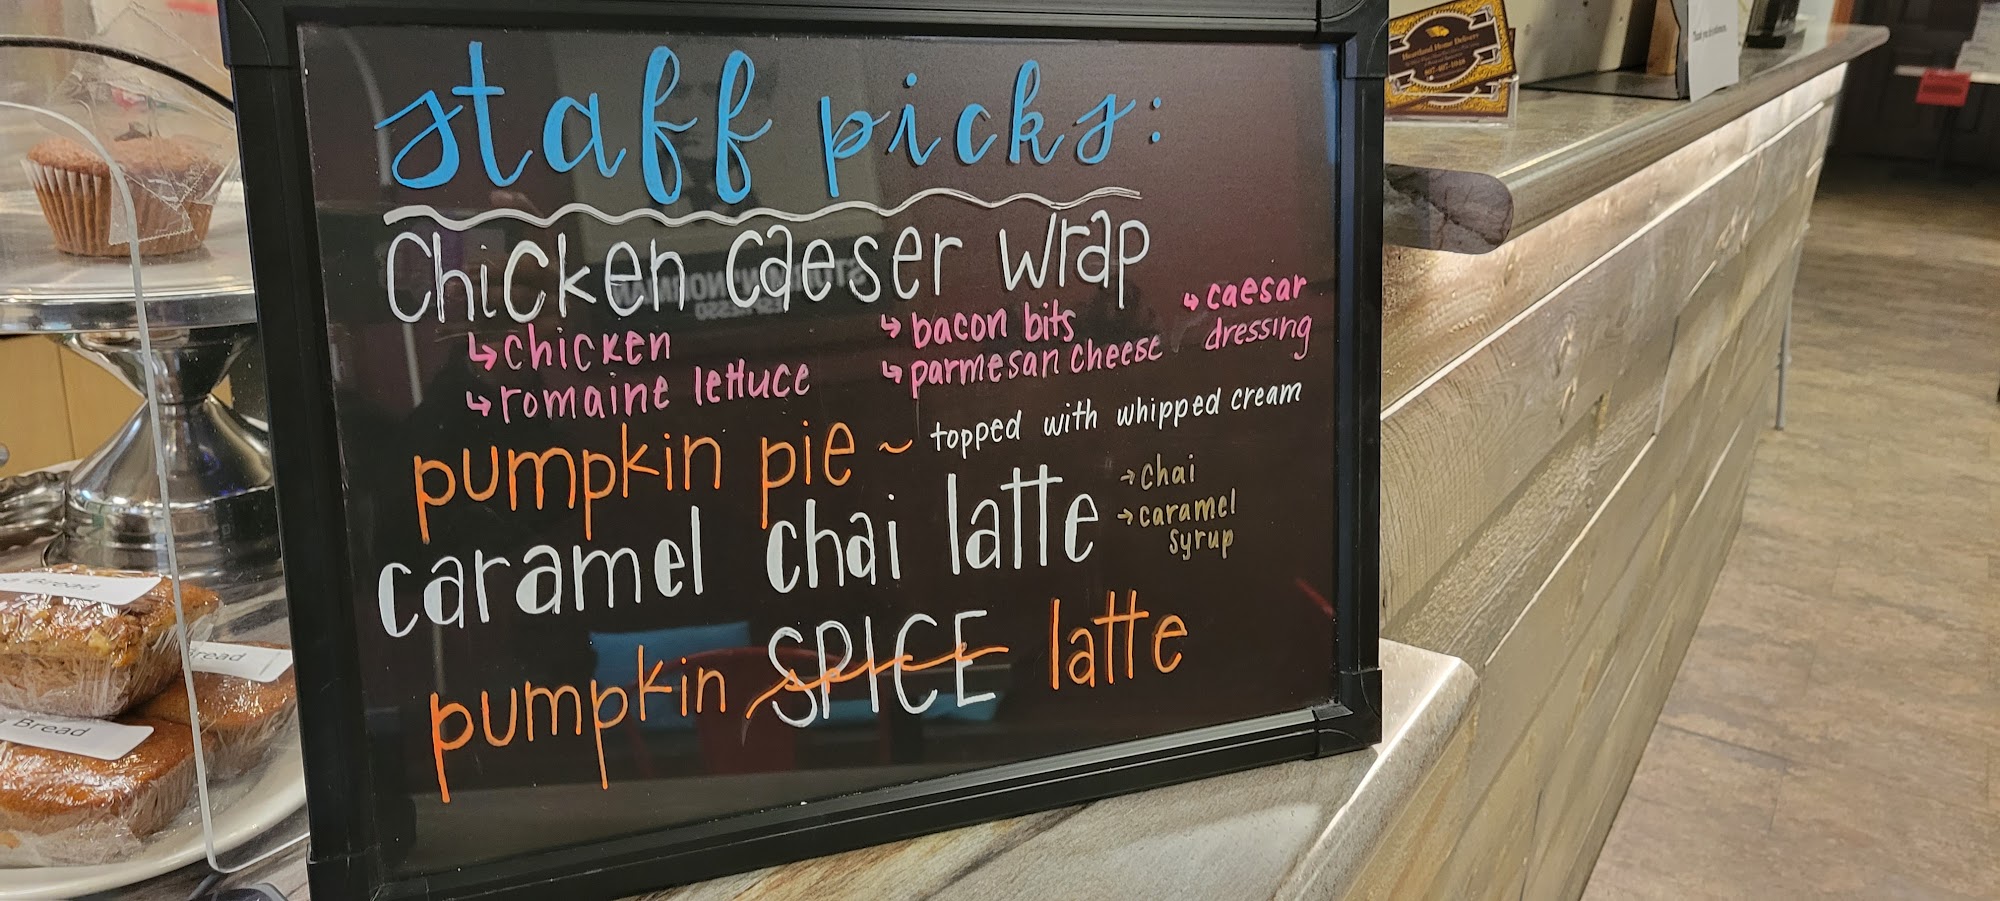 staff picks:
Chicken Caeser Wrap
↳ chicken
↳ romaine lettuce
↳ bacon bits
↳ parmesan cheese
↳ caesar
dressing
pumpkin pie ~ topped with whipped cream
caramel chai latte
→ chai
→ caramel
syrup
pumpkin SPICE latte
Heartland Home Delivery
Bread
Bread
Bread